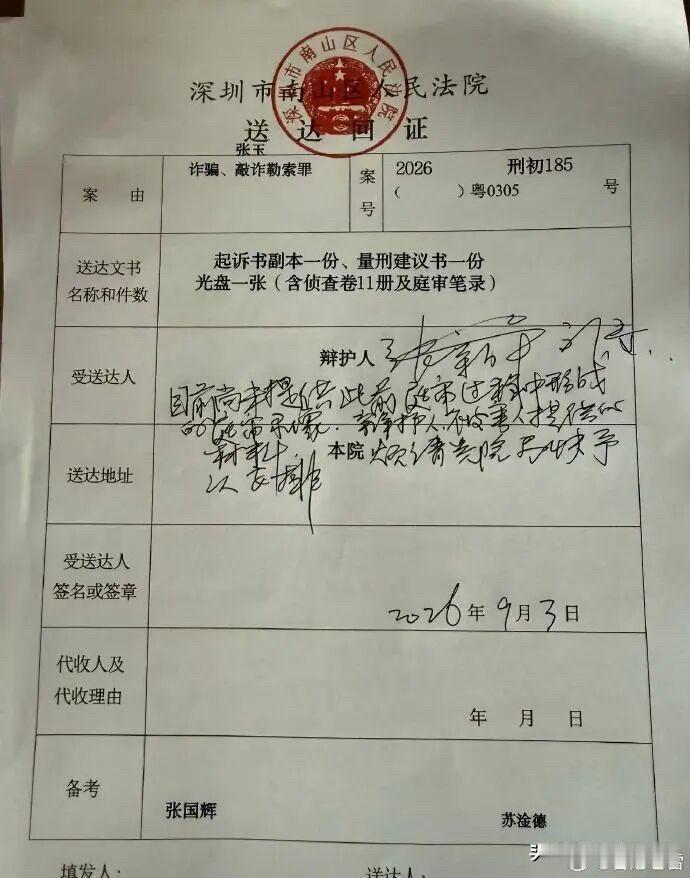 深圳市南山区人民法院
深圳市南山区人民法院
送达回证
张玉
案 由
诈骗、敲诈勒索罪
案号
2026 刑初185
（ ）粤0305 号
送达文书
名称和件数
起诉书副本一份、量刑建议书一份
光盘一张（含侦查卷11册及庭审笔录）
受送达人
辩护人
目前尚未提供此前庭审过程中形成
的庭审录像、辩护人、被害人提供的
材料。
烦请贵院尽快予
以安排
送达地址
本院
受送达人
签名或签章
2026年9月3日
代收人及
代收理由
年 月 日
备考
张国辉 苏淦德
填发人： 送达人：